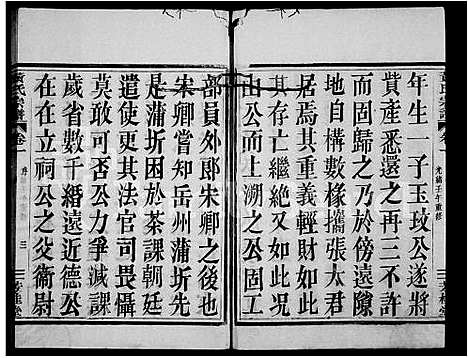 光緒壬午重修
年生一子玉玫公遂將
貲產悉還之再三不許
而固歸之乃於傍遠隙
地自構數椽攜張太君
居焉其重義輕財如此
其存亡繼絕又如此況
由公而上溯之公固工
部員外郎宋卿之後也
宋卿嘗知岳州蒲圻先
是蒲圻困於茶課朝廷
遣使更其法官司畏懼
莫敢可否公力爭減課
歲省數千緡遠近德公
在在立祠公之父衛尉
黃氏宗譜 卷一 三